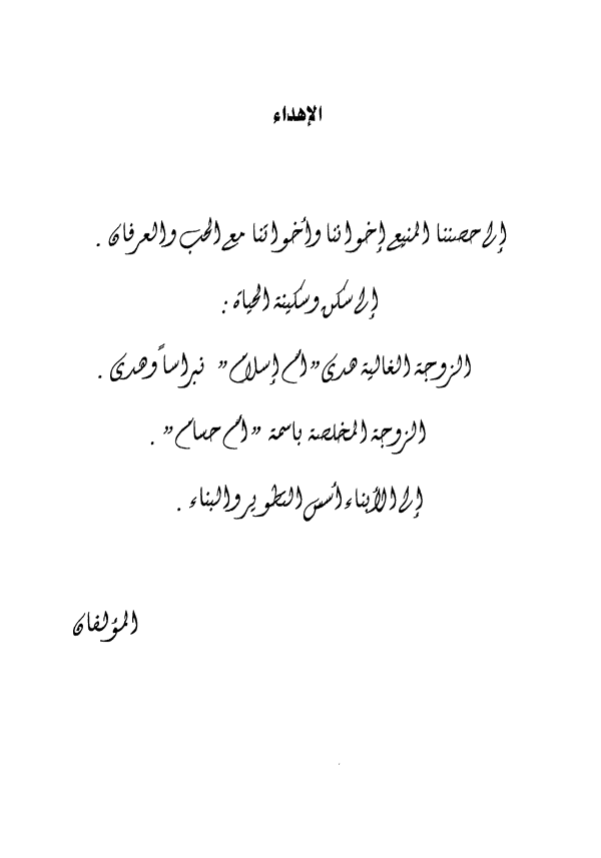 الإهداء
إلى حصننا المنيع إخواننا وأخواتنا مع الحب والعرفان .
إلى سكن وسكينة الحياة :
الزوجة الغالية هدى "أم إسلام" نبراساً وهدى .
الزوجة المخلصة باسمة "أم حسام" .
إلى الأبناء أسس التطوير والبناء .
المؤلفان